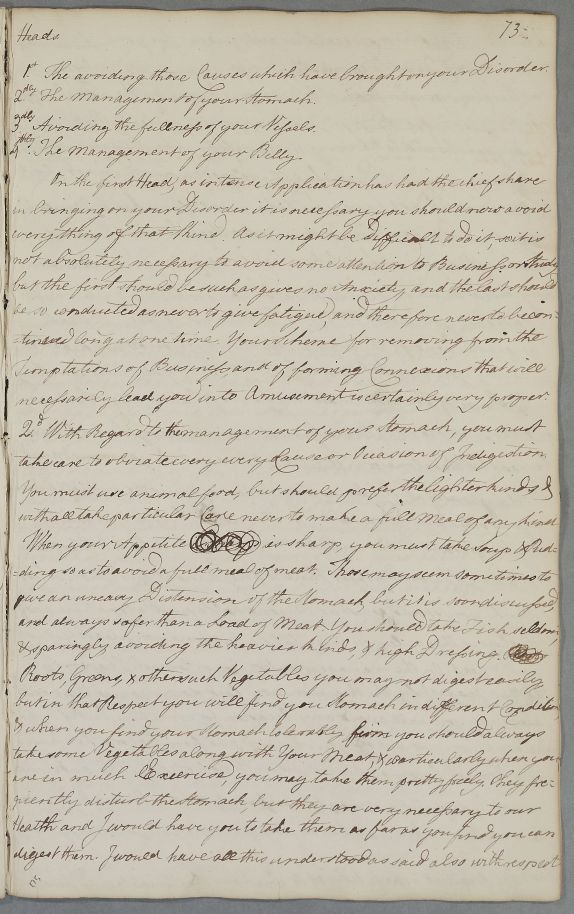 73
Heads
1st The avoiding those Causes which have brought on your Disorder.
2dly The Management of your Stomach.
3dly Avoiding the fullness of your Vessels.
4thly The Management of your Belly.
On the first Head, as intense Application has had the chief share
in bringing on your Disorder it is necessary you should now avoid
every thing of that kind. As it might be difficult to do it so it is
not absolutely necessary to avoid some attention to Business or Study
but the first should be such as gives no Anxiety and the last should
be so conducted as never to give fatigue, and therefore never to be con=
=tinued long at one time. Your Scheme for removing from the
Temptations of Business and of forming Connexions that will
necessarily lead you into Amusement is certainly very proper.
2d With Regard to the management of your Stomach, you must
take care to obviate every every Cause or Occasion of Indigestion
You must use animal food, but should prefer the lighter kinds &
with all take particular Care never to make a full Meal of any kind.
When your Appetite is sharp, you must take soup & Pud-
=ding so as to avoid a full meal of meat. These may seem sometimes to
give an uneasy Distension of the Stomach, but it is soon discussed,
and always safer than a Load of Meat. You should take Fish seldom
& sparingly avoiding the heavier kinds, & high Dressing.
Roots, Greens & other such Vegetables you may not digest easily
but in that Respect you will find your Stomach in different Condition,
& when you find your Stomach tolerably firm you should always
take some Vegetables along with Your Meat, & particularly when you
are in much Exercise, you may take them pretty freely. They fre=
quently disturb the stomach, but they are very necessary to our
Health and I would have you to take them as far as you find you can
digest them. I would have all this understood as said also with respect